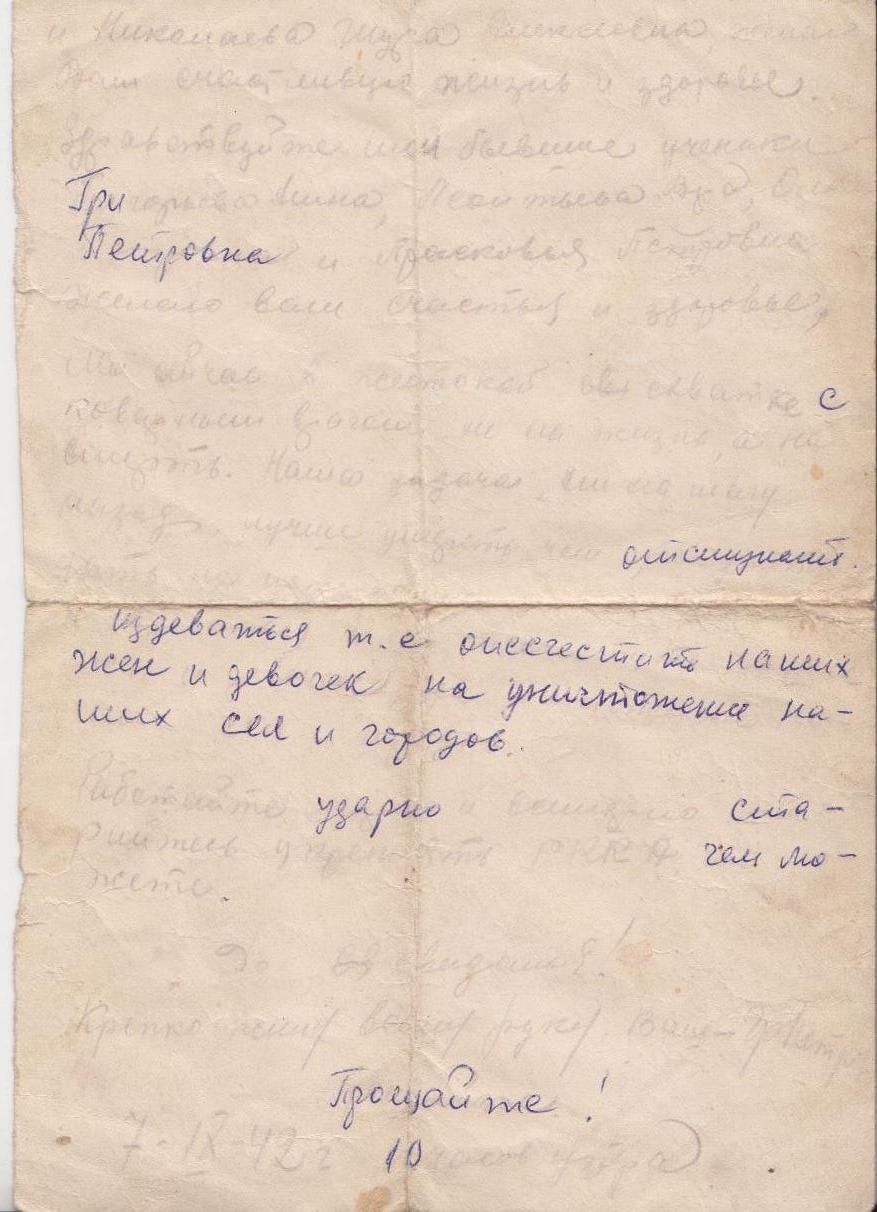 и Николаева Шура
Вам счастливую жизнь и здоровье.
Здравствуйте мои бывшие ученики
Григорьева Анна, Леонтьева
Петровна и Прасковья Петровна
желаю вам счастья и здоровье,
Мы сейчас в жестокой схватке с
коварным врагом не на жизнь, а на
смерть. Наша задача ни на шагу
назад, лучше умереть чем отступать.
издеваться т.е
наших
жен и девочек на уничтожение на-
ших сел и городов.
Работайте ударно и ста-
райтесь укреплять РККА чем мо-
жете.
До свиданья!
Крепко жму вашу руку. Ваш
Прощайте!
7-IX-42 г 10 часов утра